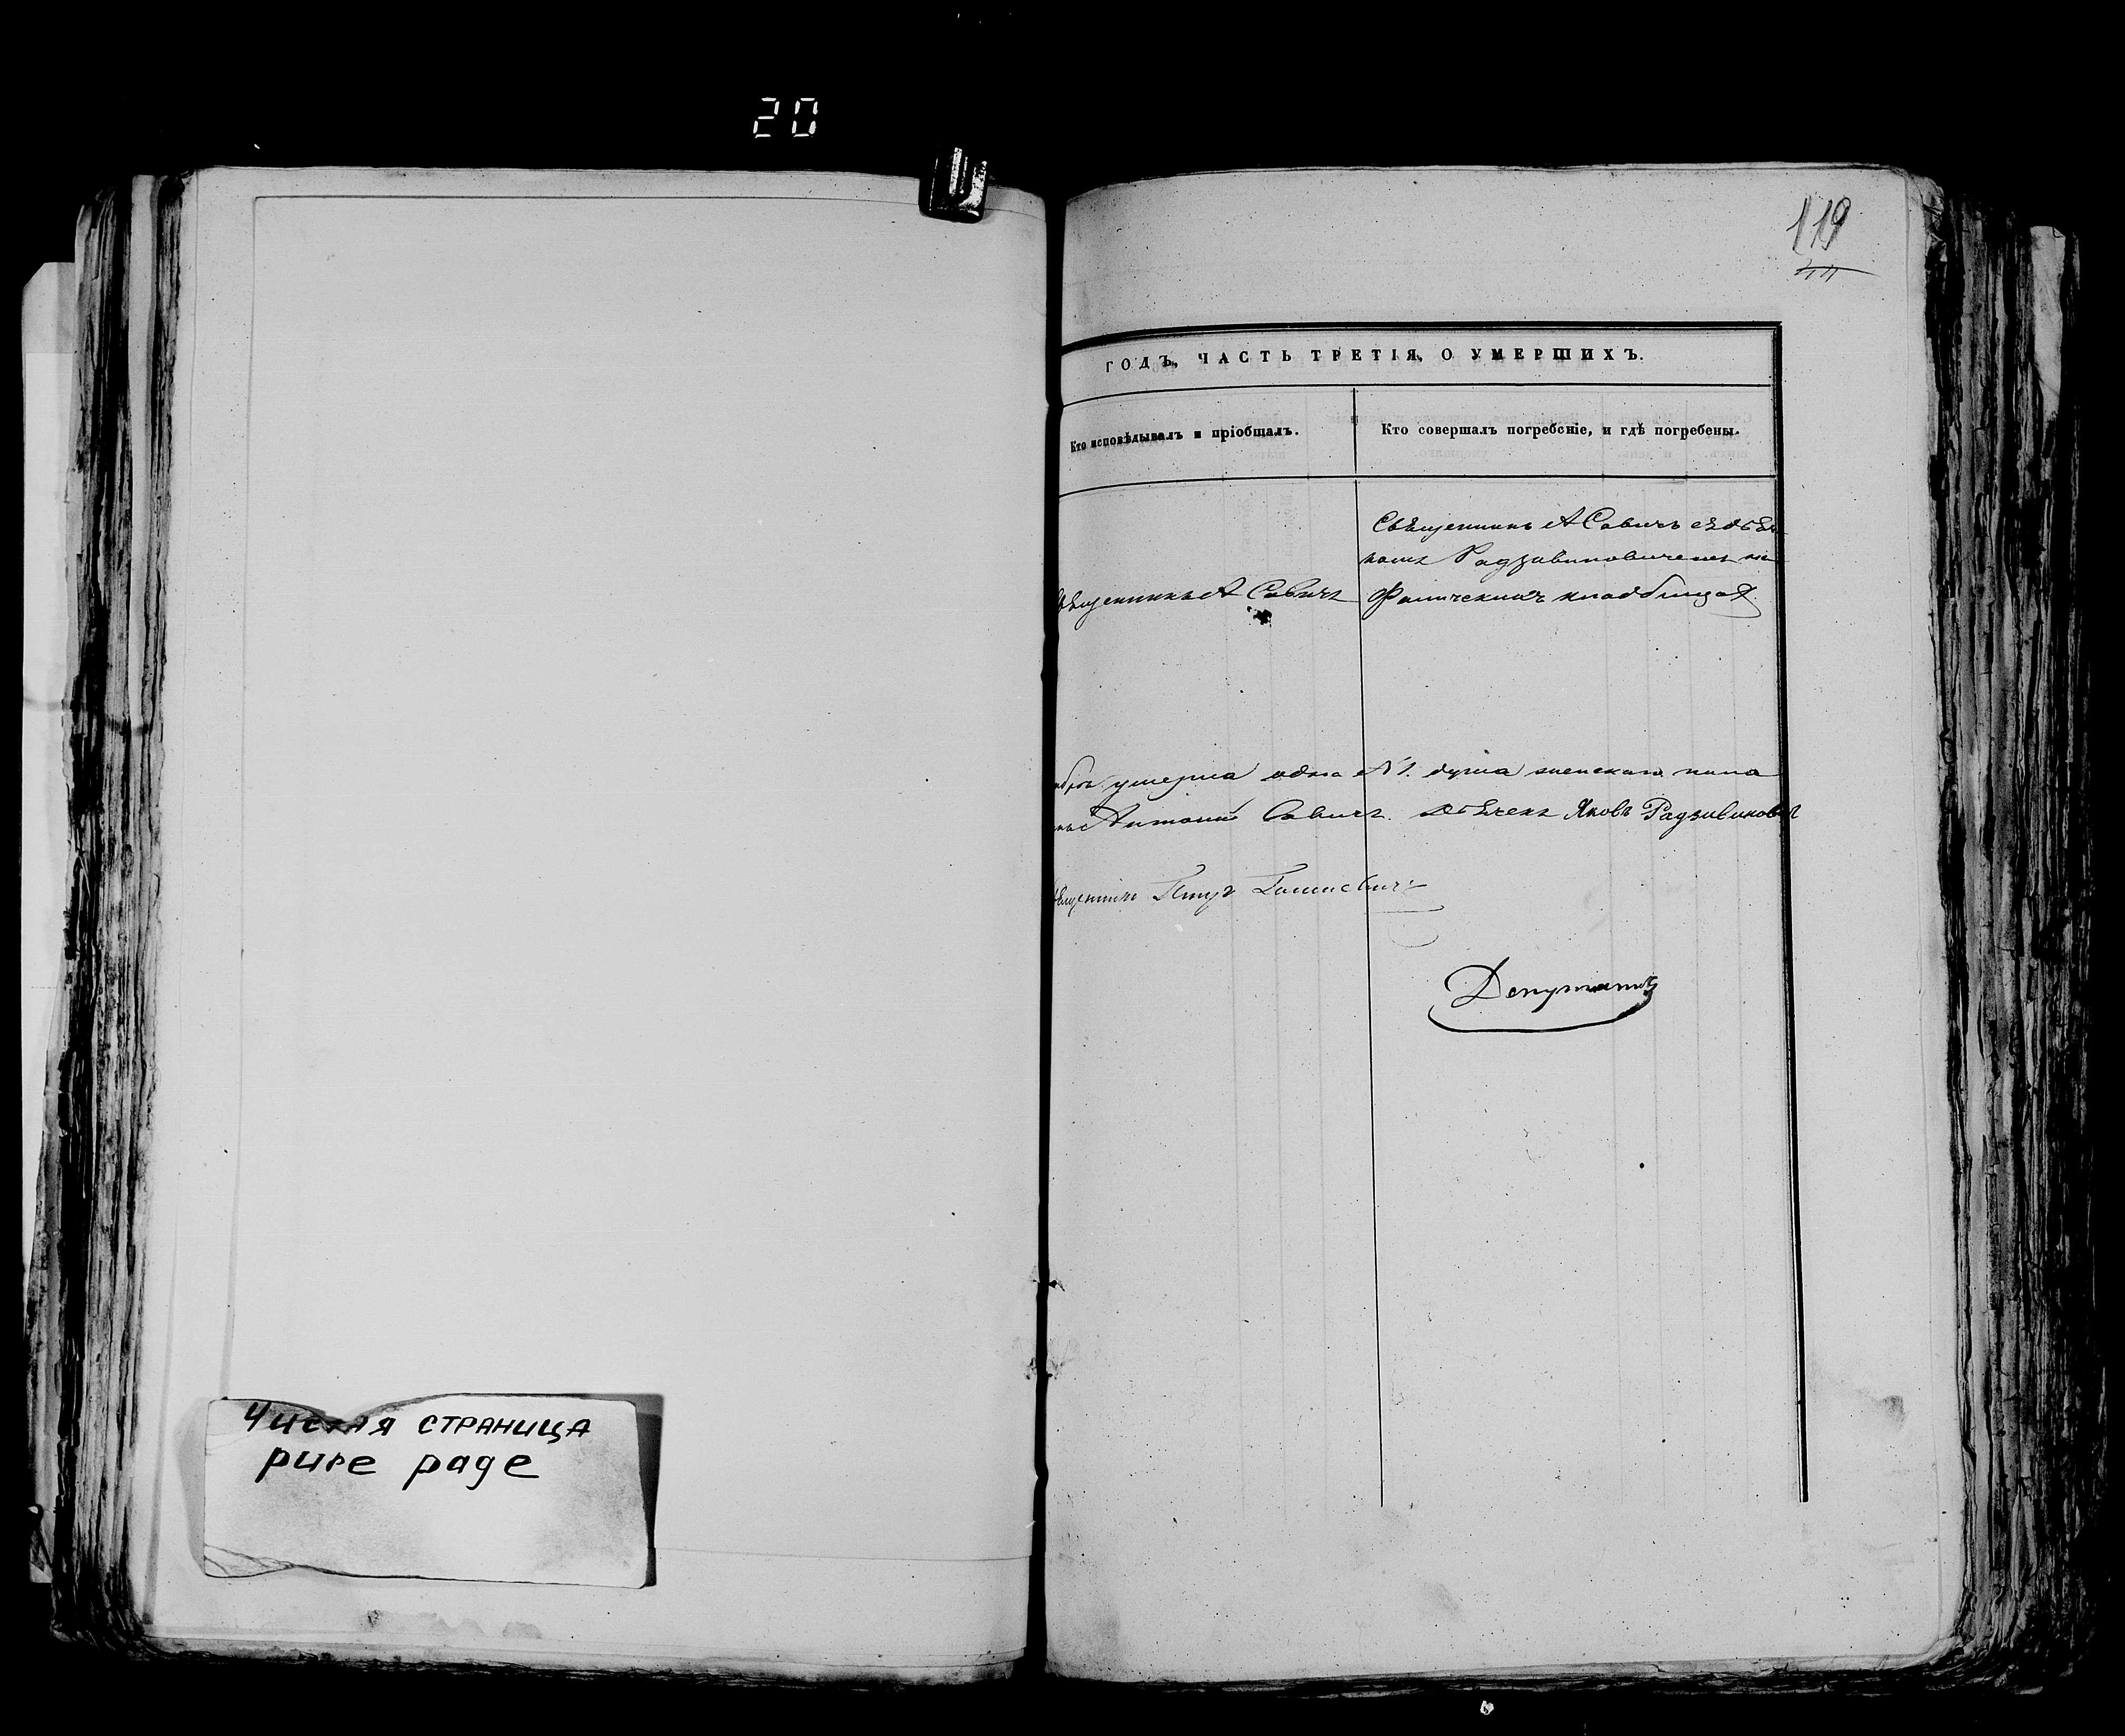 20
119
44
ГОДЪ, ЧАСТЬ ТРЕТІЯ, О УМЕРШИХЪ.
Кто исповѣдывалъ и пріобщалъ.
Кто совершалъ погребеніе, и гдѣ погребены.
Священникъ А Савичъ съ дья
комъ Радзивиновичемъ на
Священникъ А Савичъ
кладбищѣ
умерла одна №1. душа женскаго пола
Антоній Савичъ. Дьячекъ Яковъ Радзивиновичъ
Петръ
Депутатъ
Чистая страница
pure page